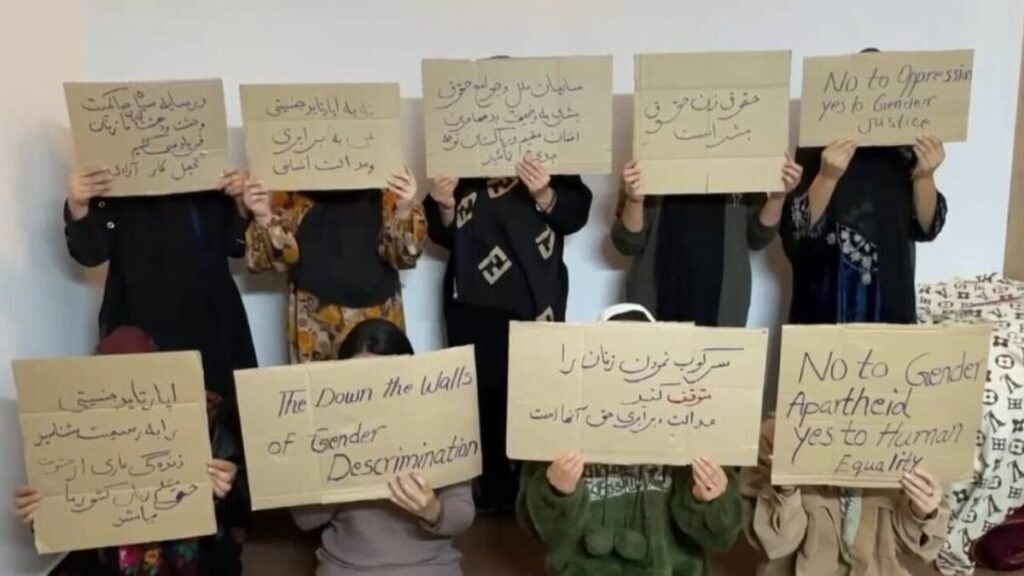 در سایه سیاه حاکمیت
وحشت و دهشت تاریکی
فریاد می کشیم
تحمیل کار آزادی
نه به اپارتاید جنسیتی
بلی به برابری
و عدالت انسانی
سازمان ملل و جوامع حقوق
بشری به وضعیت بد مهاجرین
افغان مقیم در پاکستان توجه
جدی نمایند
حقوق زن حقوق
بشر است
No to Oppression
yes to Gender
Justice
اپارتاید جنسیتی
را به رسمیت بشناسید
زنده گی عاری از خشونت
حق زنان کشور ما
میباشد
The Down the Walls
of Gender
Descrimination
سرکوب نمودن زنان را
متوقف کنید
عدالت و برابری حق آنها است
No to Gender
Apartheid
yes to Human
Equality